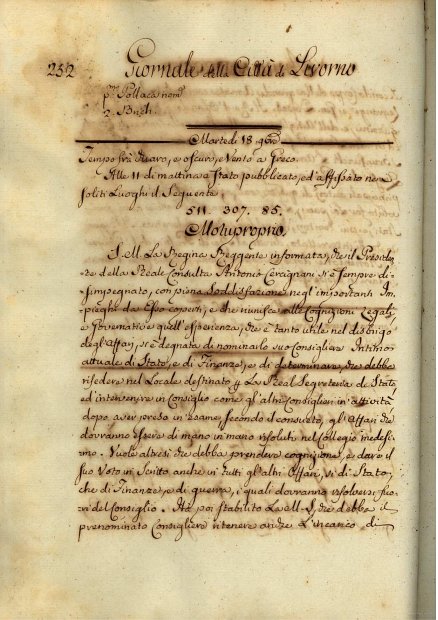 232 Giornale della Città di Livorno
p.ma Pollaca nom.
2. Bnch.
Martedì 18. 9bre
Tempo frà chiaro, e oscuro, e Vento a Greco.
Alle 11 di mattina è stato pubblicato, ed affissato nei
soliti Luoghi il Seguente
511. 307. 85.
Motuproprio.
S. M. La Regina Reggente informata, che il Preside
te della Reale Consulta Antonio Cercignani si è sempre di-
simpegnato, con piena Soddisfazione negl'importanti Im-
pieghi da Esso coperti, e che riunisce alle Cognizioni Legali
e Governative quell'esperienza, che è tanto utile nel disbrigo
degl'affari, si è degnata di nominarlo suo Consigliere Intimo
attuale di Stato, e di Finanze, e di determinare, che debba
risedere nel Locale destinato p. La Real Segreteria di Stato,
ed intervenire in Consiglio come gl'altri Consiglieri in attività
dopo aver presa in esame, secondo il consueto, gl'affari che
dovranno essere di mano in mano risoluti nel Collegio medesi-
mo. Vuole altresì che debba prendere cognizione, e dare il
suo Voto in Scritto anche in tutti gl'altri Affari, sì di Stato,
che di Finanze, e di guerra, i quali dovranno risolversi fuo-
ri del Consiglio. Ha poi stabilito La M. S. che debba il
prenominato Consigliere ritenere anche L'incarico di